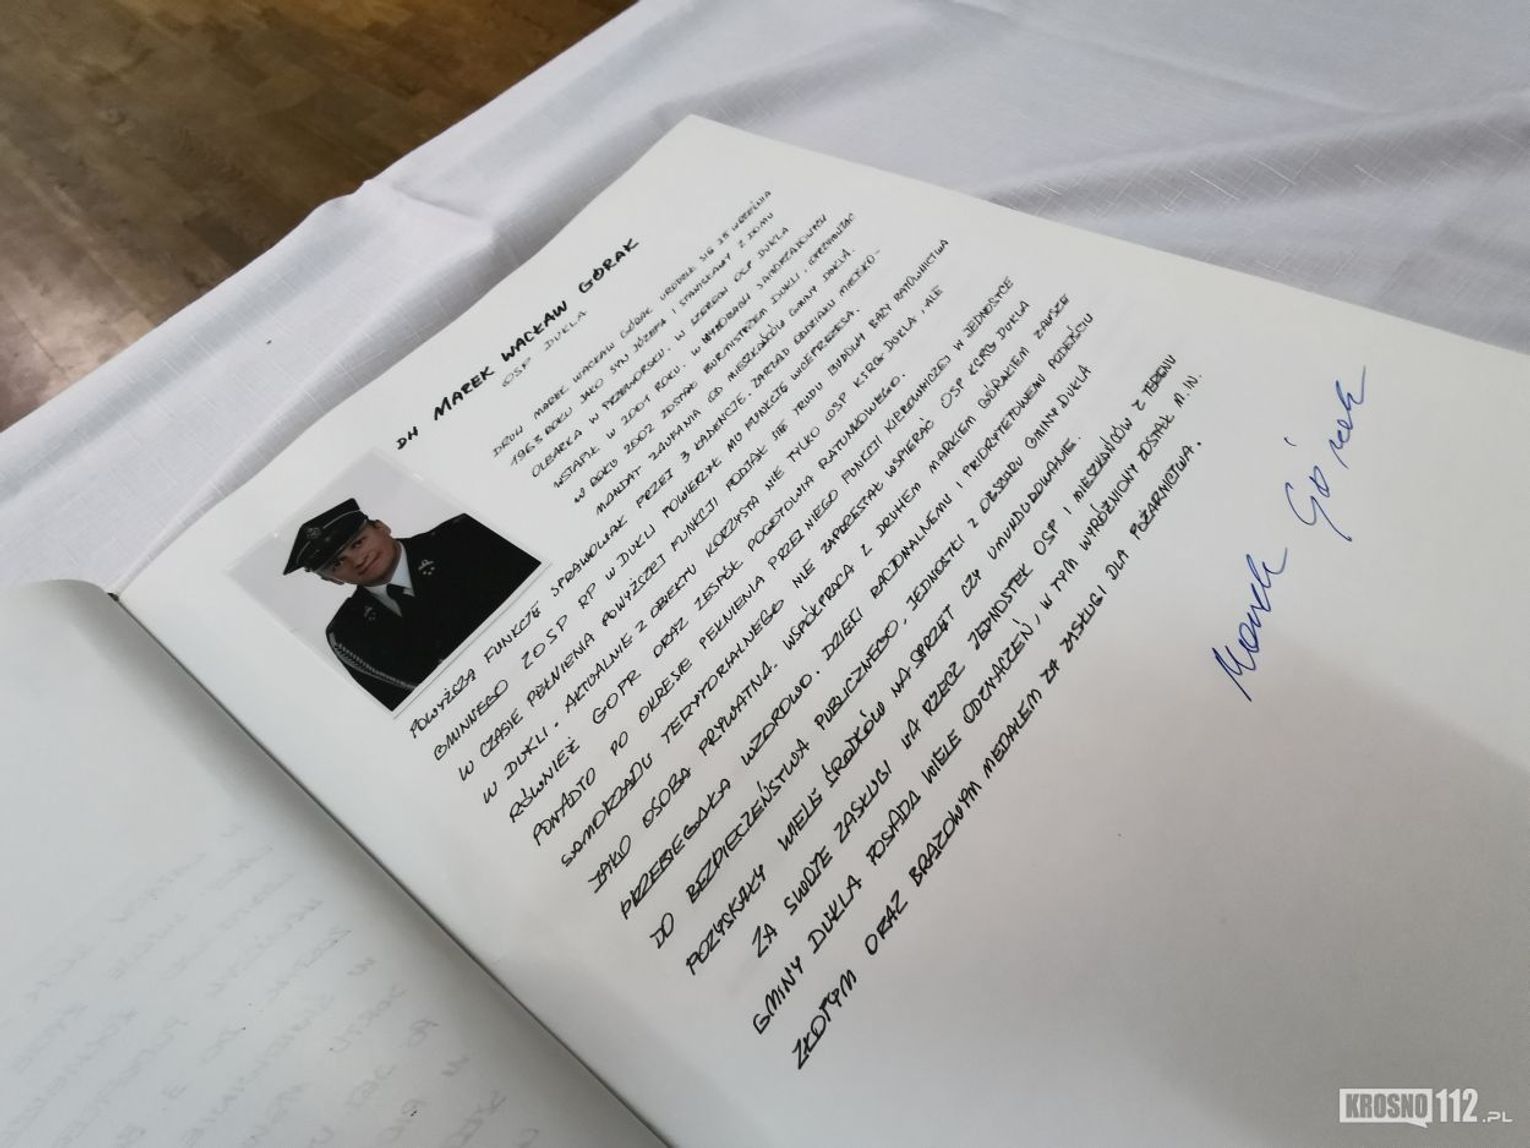 DH MAREK WACŁAW GÓRAK
OSP DUKLA
DRUH MAREK WACŁAW GÓRAK URODZIŁ SIĘ 28 WRZEŚNIA
1963 ROKU JAKO SYN JÓZEFA I STANISŁAWY Z DOMU
OLBARKA W PRZEWORSKU. W SZEREGI OSP DUKLA
WSTĄPIŁ W 2001 ROKU. W WYBORACH SAMORZĄDOWYCH
W ROKU 2002 ZOSTAŁ BURMISTRZEM DUKLI, OTRZYMUJĄC
MANDAT ZAUFANIA OD MIESZKAŃCÓW GMINY DUKLA.
POWYŻSZĄ FUNKCJĘ SPRAWOWAŁ PRZEZ 3 KADENCJE. ZARZĄD ODDZIAŁU MIEJSKO-
GMINNEGO ZOSP RP W DUKLI POWIERZYŁ MU FUNKCJĘ WICEPREZESA.
W CZASIE PEŁNIENIA POWYŻSZEJ FUNKCJI PODJĄŁ SIĘ TRUDU BUDOWY BAZY RATOWNICTWA
W DUKLI. AKTUALNIE Z OBIEKTU KORZYSTA NIE TYLKO OSP KSRG DUKLA, ALE
RÓWNIEŻ GOPR ORAZ ZESPÓŁ POGOTOWIA RATUNKOWEGO.
PONADTO PO OKRESIE PEŁNIENIA PRZEZ NIEGO FUNKCJI KIEROWNICZEJ W JEDNOSTCE
SAMORZĄDU TERYTORIALNEGO NIE ZAPRZESTAŁ WSPIERAĆ OSP KSRG DUKLA
JAKO OSOBA PRYWATNA. WSPÓŁPRACA Z DRUHEM MARKIEM GÓRAKIEM ZAWSZE
PRZEBIEGAŁA WZOROWO. DZIĘKI RACJONALNEMU I PRIORYTETOWEMU PODEJŚCIU
DO BEZPIECZEŃSTWA PUBLICZNEGO, JEDNOSTKI Z OBSZARU GMINY DUKLA
POZYSKAŁY WIELE ŚRODKÓW NA SPRZĘT CZY UMUNDUROWANIE.
ZA SWOJE ZASŁUGI NA RZECZ JEDNOSTEK OSP I MIESZKAŃCÓW Z TERENU
GMINY DUKLA POSIADA WIELE ODZNACZEŃ, W TYM WYRÓŻNIONY ZOSTAŁ M.IN.
ZŁOTYM ORAZ BRĄZOWYM MEDALEM ZA ZASŁUGI DLA POŻARNICTWA.
Marek Górak
KROSNO112.PL